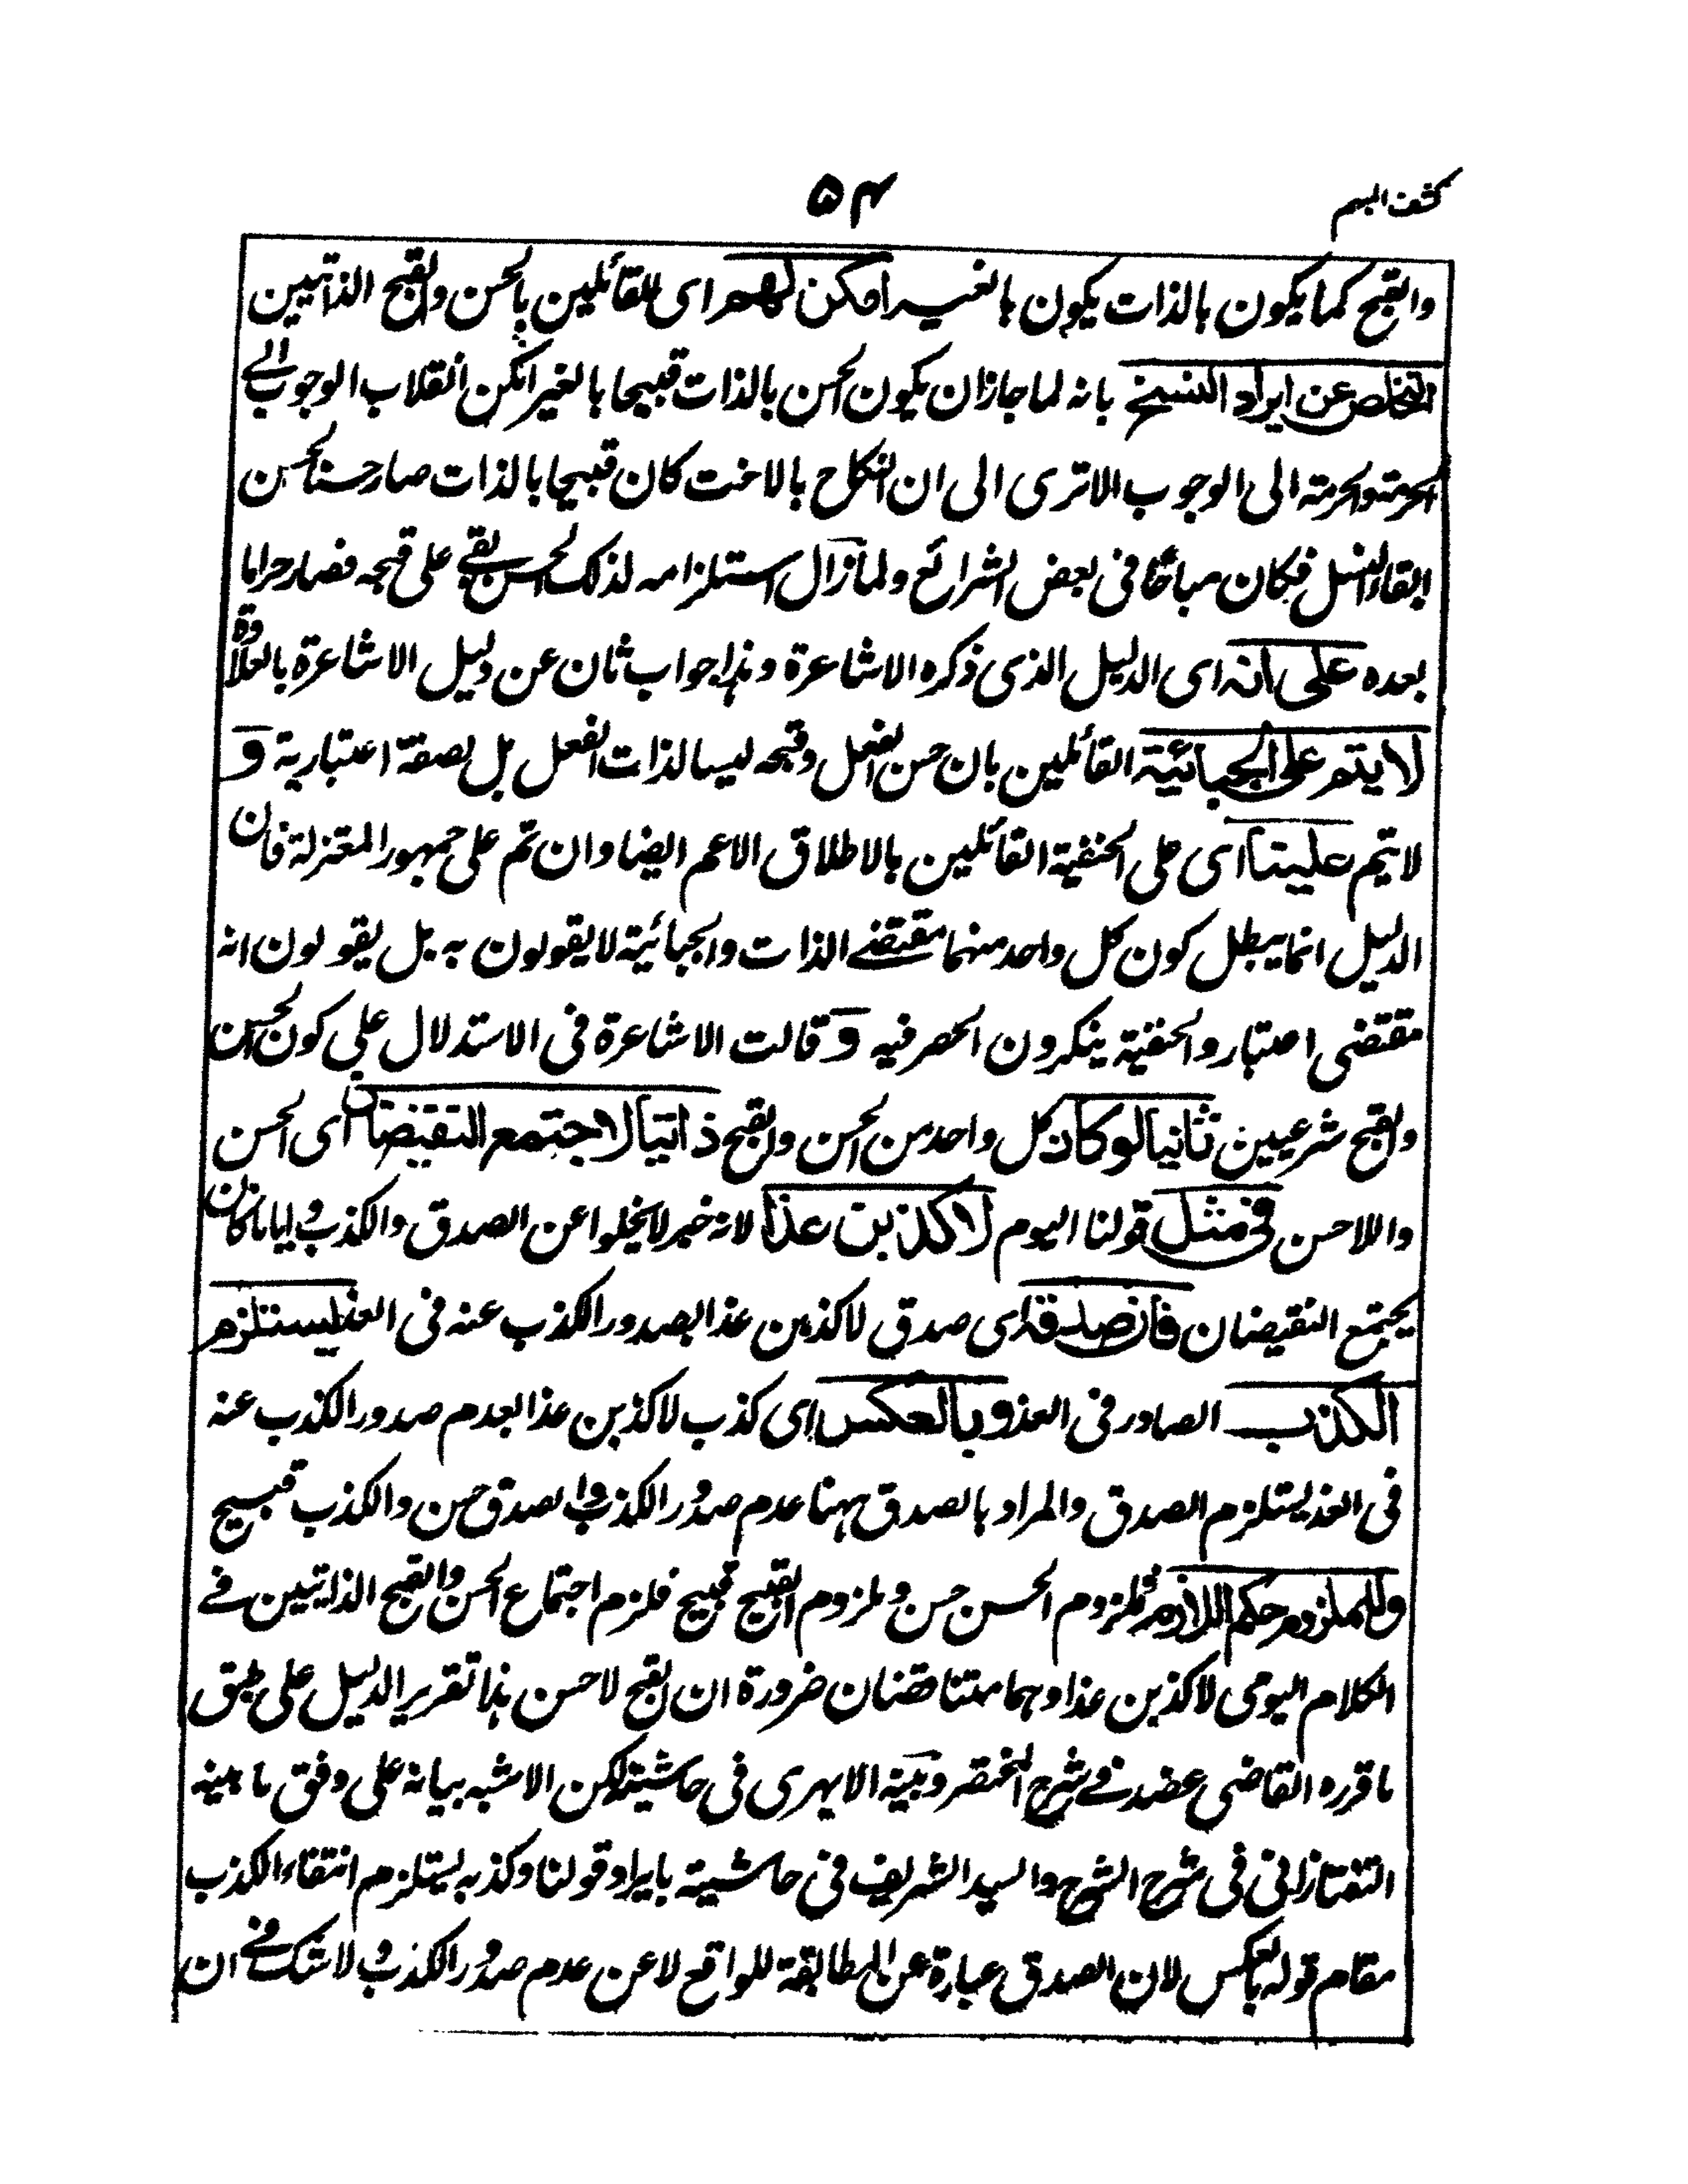 كشف المبهم
۵۴
والقبح كما يكون بالذات يكون بالغير امكن لهم اى للقائلين بالحسن والقبح الذاتيين
التخلص عن ايراد النسخ بانه لما جاز ان يكون الحسن بالذات قبيحا بالغير امكن انقلاب الوجوب الى
الحرمة والحرمة الى الوجوب الا ترى الى ان النكاح بالاخت كان قبيحا بالذات صار حسنا لحسن
ابقاء النسل فكان مباحا فى بعض الشرائع ولما زال استلزامه لذلك الحسن بقى على قبحه فصار حراما
بعده على انه اى الدليل الذى ذكره الاشاعرة وهذا جواب ثان عن دليل الاشاعرة بالعلاوة
لا يتم على الجبائية القائلين بان حسن الفعل وقبحه ليسا لذات الفعل بل لصفة اعتبارية و
لا يتم علينا اى على الحنفية القائلين بالاطلاق الاعم ايضا وان تم على جمهور المعتزلة فان
الدليل انما يبطل كون كل واحد منهما مقتضى الذات والجبائية لا يقولون به بل يقولون انه
مقتضى اعتبار والحنفية ينكرون الحصر فيه و قالت الاشاعرة فى الاستدلال على كون الحسن
والقبح شرعيين ثانيا لو كان كل واحد من الحسن والقبح ذاتيا لاجتمع النقيضان اى الحسن
واللاحسن فى مثل قولنا اليوم لاكذبن غذا لانه خبر لا يخلوا عن الصدق والكذب وايا ما كان
يجتمع النقيضان فان صدقه اى صدق لاكذبن غذا بصدور الكذب عنه فى الغذ يستلزم
الكذب الصادر فى الغذ وبالعكس اى كذب لاكذبن غذا بعدم صدور الكذب عنه
فى الغذ يستلزم الصدق والمراد بالصدق ههنا عدم صدور الكذب والصدق حسن والكذب قبيح
وللملزوم حكم اللازم فملزوم الحسن حسن وملزوم القبيح قبيح فلزم اجتماع الحسن والقبح الذاتيين فى
الكلام اليومى لاكذبن غذا وهما متناقضان ضرورة ان القبح لا حسن هذا تقرير الدليل على طبق
ما قرره القاضى عضد فى شرح المختصر وبينه الابهرى فى حاشيته لكن الاشبه بيانه على وفق ما بينه
التفتازانى فى شرح الشرح والسيد الشريف فى حاشيته بايراد قولنا وكذبه يستلزم انتفاء الكذب
مقام قوله بالعكس لان الصدق عبارة عن المطابقة للواقع لا عن عدم صدور الكذب ولا شك فى ان